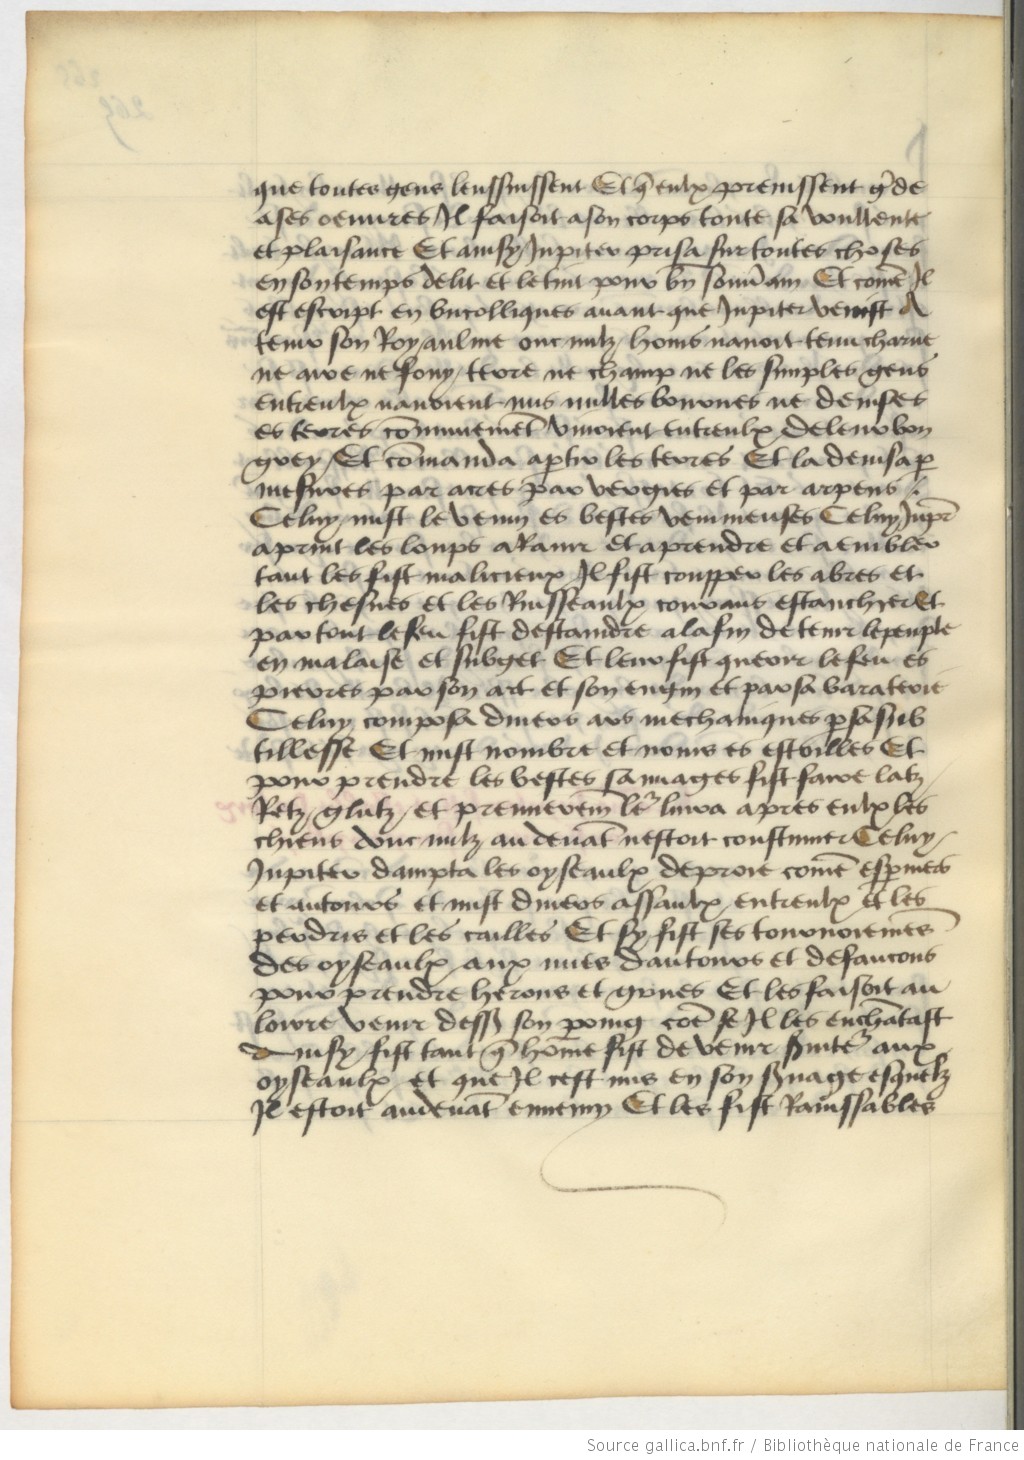 que toutes gens lenssuissent Et q̃ eulx prenissent g̃de
a ses oeuures Il faisoit a son corps toute sa voullente
et plaisance Et ainsy Jupiter prisa sur toutes choses
en son temps delit et le tint pour bñ souuˀain Et com̃e Il
est escript en bucolliques auant que Jupiter venist A
tenir son Royaulme onc nulz homs nauoit tenu charue
ne aire ne fouy terre ne champ ne les simples gens
entreulx nauoient mis nulles bonnes ne deuises
es terres cõmunemẽt viuoient entreulx de leur bon
grey Et cõmanda aptir les terres Et la deuisa p
mesures par acres par vergies et par arpens /.
Celuy mist le venin es bestes venimeuses Celuy Jupr̃
aprint les loups a Rauir et aprendre et a embler
tant les fist malicieux Il fist coupper les abres et
les chesnes et les Ruisseaulx courans estanchier Et
par tout le feu fist destaindre a la fin de tenir le peuple
en malaise et subget Et leur fist querir le feu es
pierres par son art et son engin et par sa baraterie
Celuy composa diuers ars mechaniques p sa sub
tillesse Et mist nombre et noms es estoilles Et
pour prendre les bestes sauuages fist faire latz
Retz glutz et premieremˀ leˀ liura apres eulx les
chiens donc nulz au deuãt nestoit coustumier Celuy
Jupiter dampta les oyseaulx de proie com̃e esp̃uiers
et autours et mist diuers assaulx entreulx et les
perdris et les cailles Et sy fist ses tournoiemẽs
des oyseaulx aux nues dautours et de faucons
pour prendre herons et grues Et les faisoit au
loirre venir dess9 son poing cõe se Il les enchãtast
Ainsy fist tant q̃ hõme fist deuenir suiteˀ aux
oyseaulx et que Il cest mis en son seruage esquelz
Il estoit au deuãt ennemy Et les fist Rauissables
Source gallica.bnf.fr / Bibliothèque nationale de France